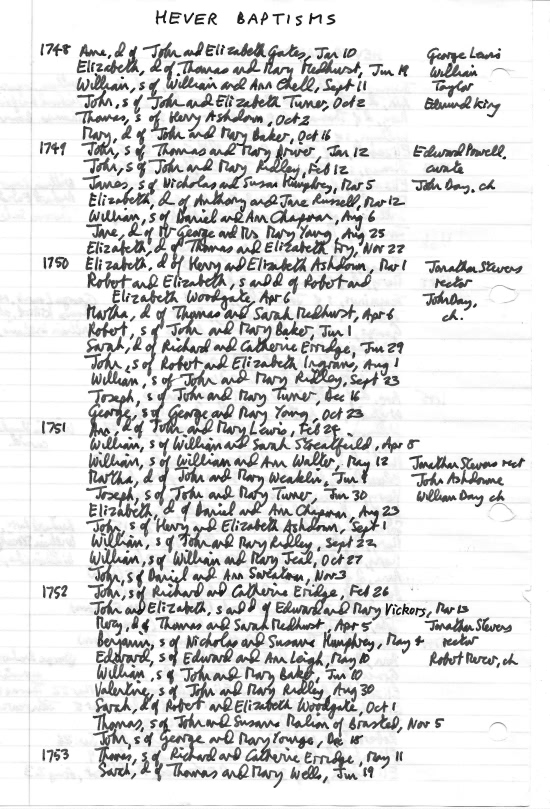 HEVER BAPTISMS
1748 Anne, d of John and Elizabeth Gates, Jan 10 George Lewis
Elizabeth, d of Thomas and Mary Medhurst, Jun 19 William
William, s of William and Ann Chell, Sept 11 Taylor
John, s of John and Elizabeth Turner, Oct 2 Edmund King
Thomas, s of Henry Ashdown, Oct 2
Mary, d of John and Mary Baker, Oct 16
1749 John, s of Thomas and Mary Driver, Jan 12 Edward Powell,
John, s of John and Mary Ridley, Feb 12 curate
James, s of Nicholas and Susan Humphrey, Mar 5 John Day, ch
Elizabeth, d of Anthony and Jane Russell, Mar 12
William, s of Daniel and Ann Chapman, Aug 6
Jane, d of Mr George and Mrs Mary Young, Aug 25
Elizabeth, d of Thomas and Elizabeth Fry, Nov 22
1750 Elizabeth, d of Henry and Elizabeth Ashdown, Mar 1 Jonathan Stevens
Robert and Elizabeth, s and d of Robert and rector
Elizabeth Woodgate, Apr 6 John Day,
Martha, d of Thomas and Sarah Medhurst, Apr 6 ch.
Robert, s of John and Mary Baker, Jun 1
Sarah, d of Richard and Catherine Erridge, Jun 29
John, s of Robert and Elizabeth Ingrams, Aug 1
William, s of John and Mary Ridley, Sept 23
Joseph, s of John and Mary Turner, Dec 16
George, s of George and Mary Young, Oct 23
1751 Ann, d of John and Mary Lewis, Feb 24
William, s of William and Sarah Streatfield, Apr 5
William, s of William and Ann Walter, May 12 Jonathan Stevens rect
Martha, d of John and Mary Weaklin, Jun 9 John Ashdowne
Joseph, s of John and Mary Turner, Jun 30 William Day ch
Elizabeth, d of Daniel and Ann Chapman, Aug 23
John, s of Henry and Elizabeth Ashdown, Sept 1
William, s of John and Mary Ridley, Sept 22
William, s of William and Mary Seal, Oct 27
John, s of Daniel and Ann Sweatman, Nov 3
1752 John, s of Richard and Catherine Eridge, Feb 26
John and Elizabeth, s and d of Edward and Mary Vickors, Mar 13
Mercy, d of Thomas and Sarah Medhurst, Apr 5 Jonathan Stevens
Benjamin, s of Nicholas and Susana Humphrey, May 4 rector
Edward, s of Edward and Ann Leigh, May 10 Robert Mercer, ch
William, s of John and Mary Baker, Jun 10
Valentine, s of John and Mary Ridley, Aug 30
Sarah, d of Robert and Elizabeth Woodgate, Oct 1
Thomas, s of John and Susana Malion of Brasted, Nov 5
John, s of George and Mary Younge, Dec 18
1753 Thomas, s of Richard and Catherine Erridge, May 11
Sarah, d of Thomas and Mary Wells, Jun 19